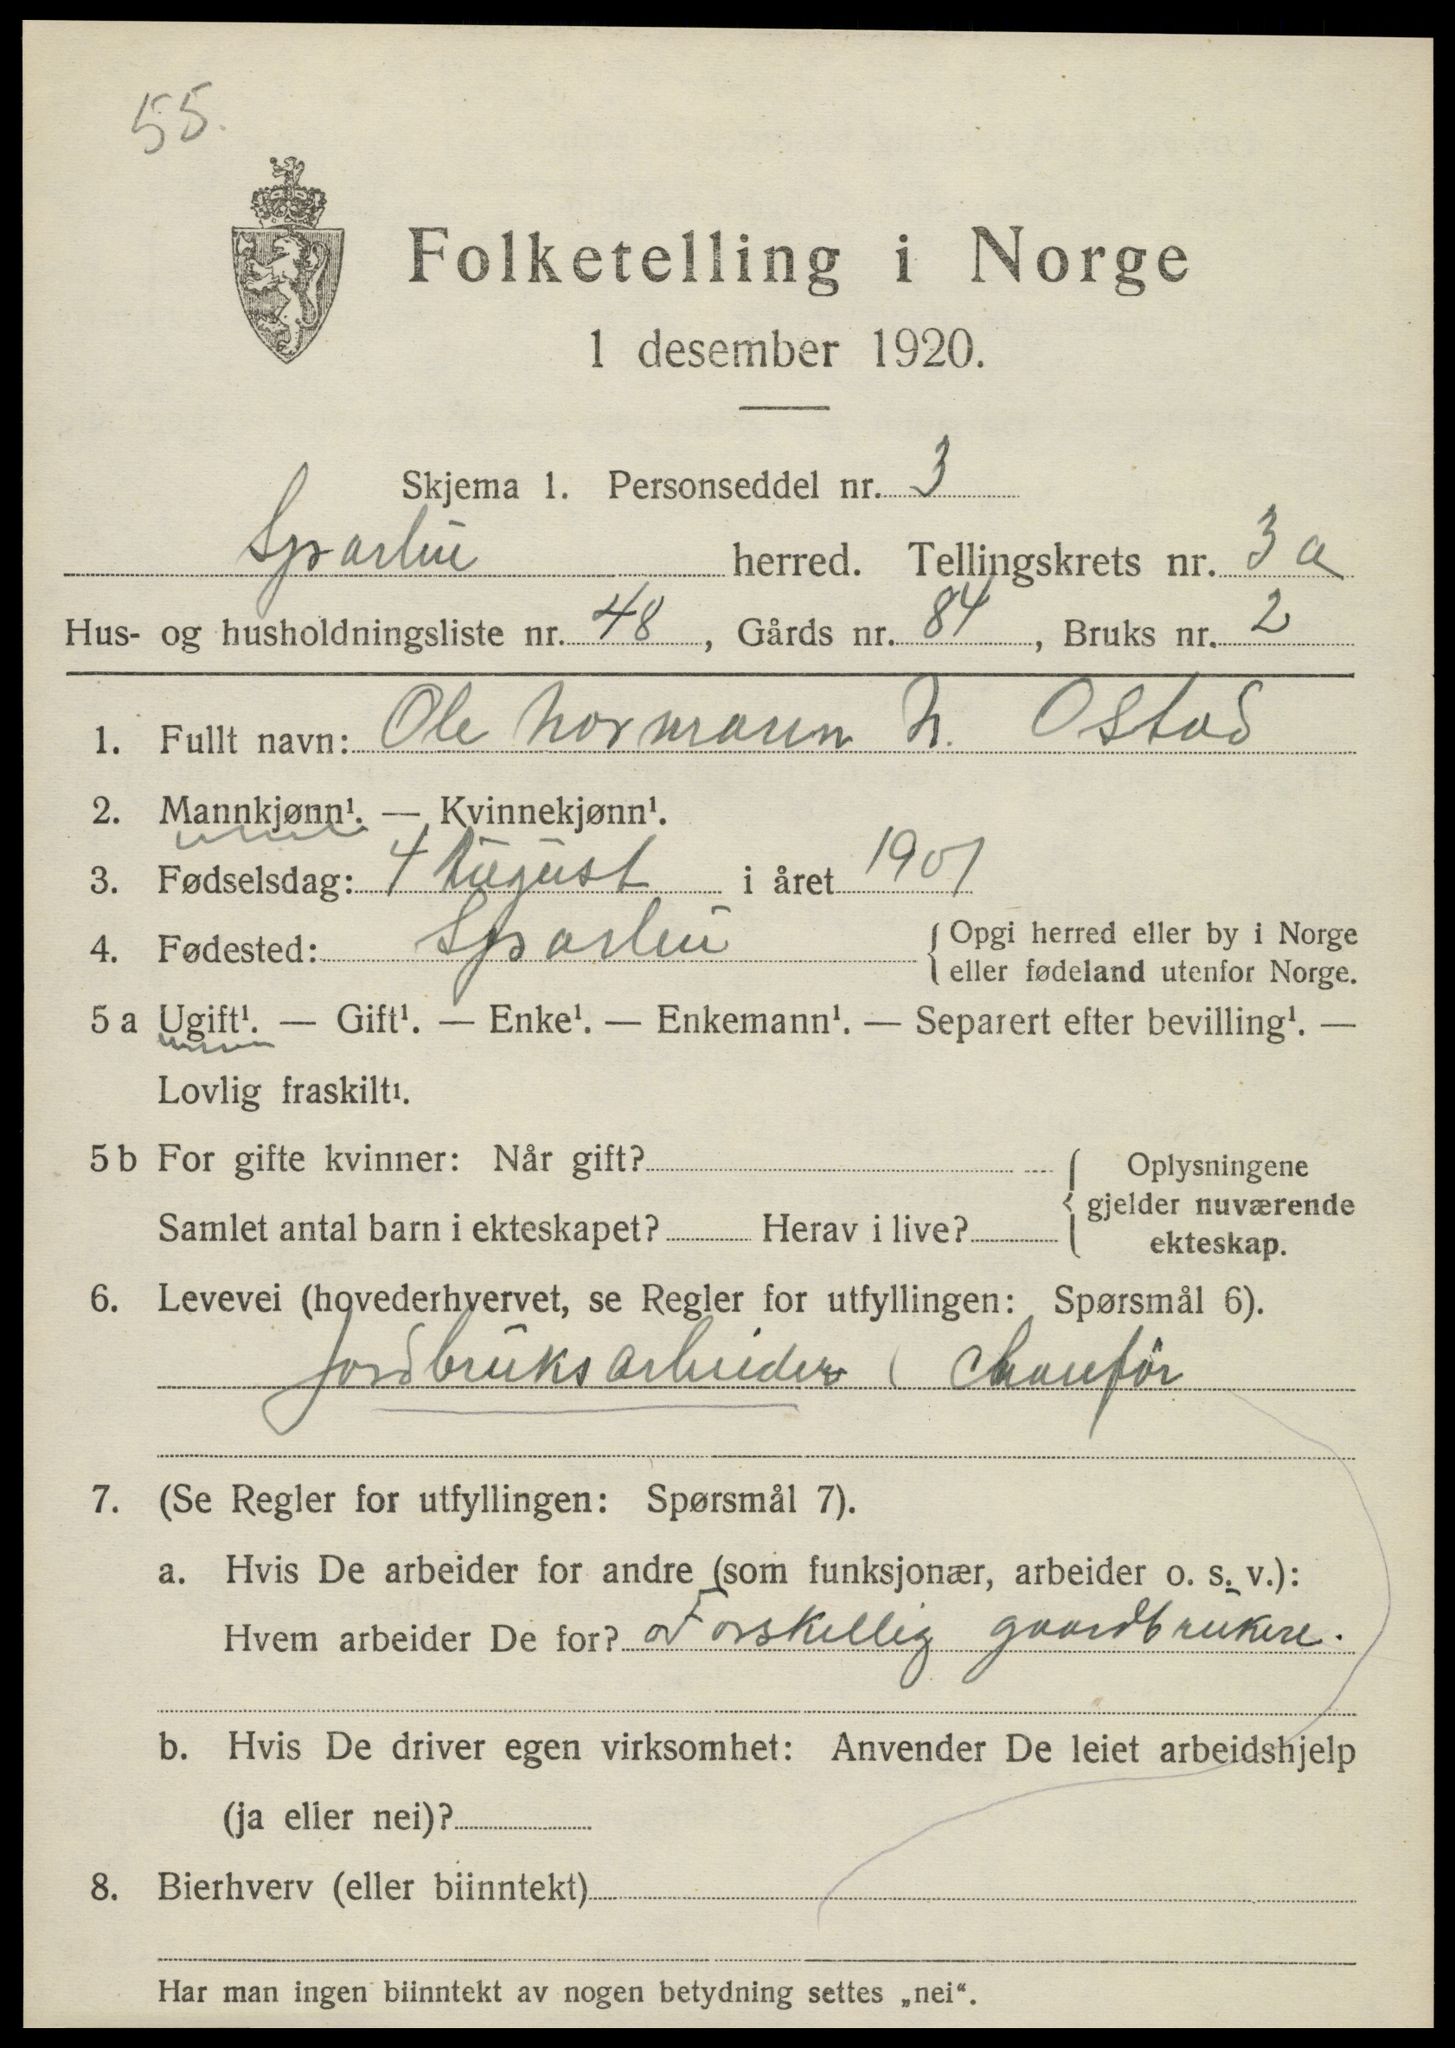 55.
Folketelling i Norge
1 desember 1920.
Skjema 1. Personseddel nr. 3
Sparbu herred. Tellingskrets nr. 3 a
Hus- og husholdningsliste nr. 48, Gårds nr. 84, Bruks nr. 2
1. Fullt navn: Ole Normann N. Ostad
2. Mannkjønn¹. — Kvinnekjønn¹.
3. Fødselsdag: 4 August i året 1901
4. Fødested: Sparbu { Opgi herred eller by i Norge
eller fødeland utenfor Norge.
5 a Ugift¹. — Gift¹. — Enke¹. — Enkemann¹. — Separert efter bevilling¹. —
Lovlig fraskilt¹.
5 b For gifte kvinner: Når gift? { Oplysningene
gjelder nuværende
Samlet antal barn i ekteskapet? Herav i live?
ekteskap.
6. Levevei (hovederhvervet, se Regler for utfyllingen: Spørsmål 6).
Jordbruksarbeider ( Chaufør
7. (Se Regler for utfyllingen: Spørsmål 7).
a. Hvis De arbeider for andre (som funksjonær, arbeider o. s. v.):
Hvem arbeider De for? Forskellig gaardbrukere.
b. Hvis De driver egen virksomhet: Anvender De leiet arbeidshjelp
(ja eller nei)?
8. Bierhverv (eller biinntekt)
Har man ingen biinntekt av nogen betydning settes „nei“.